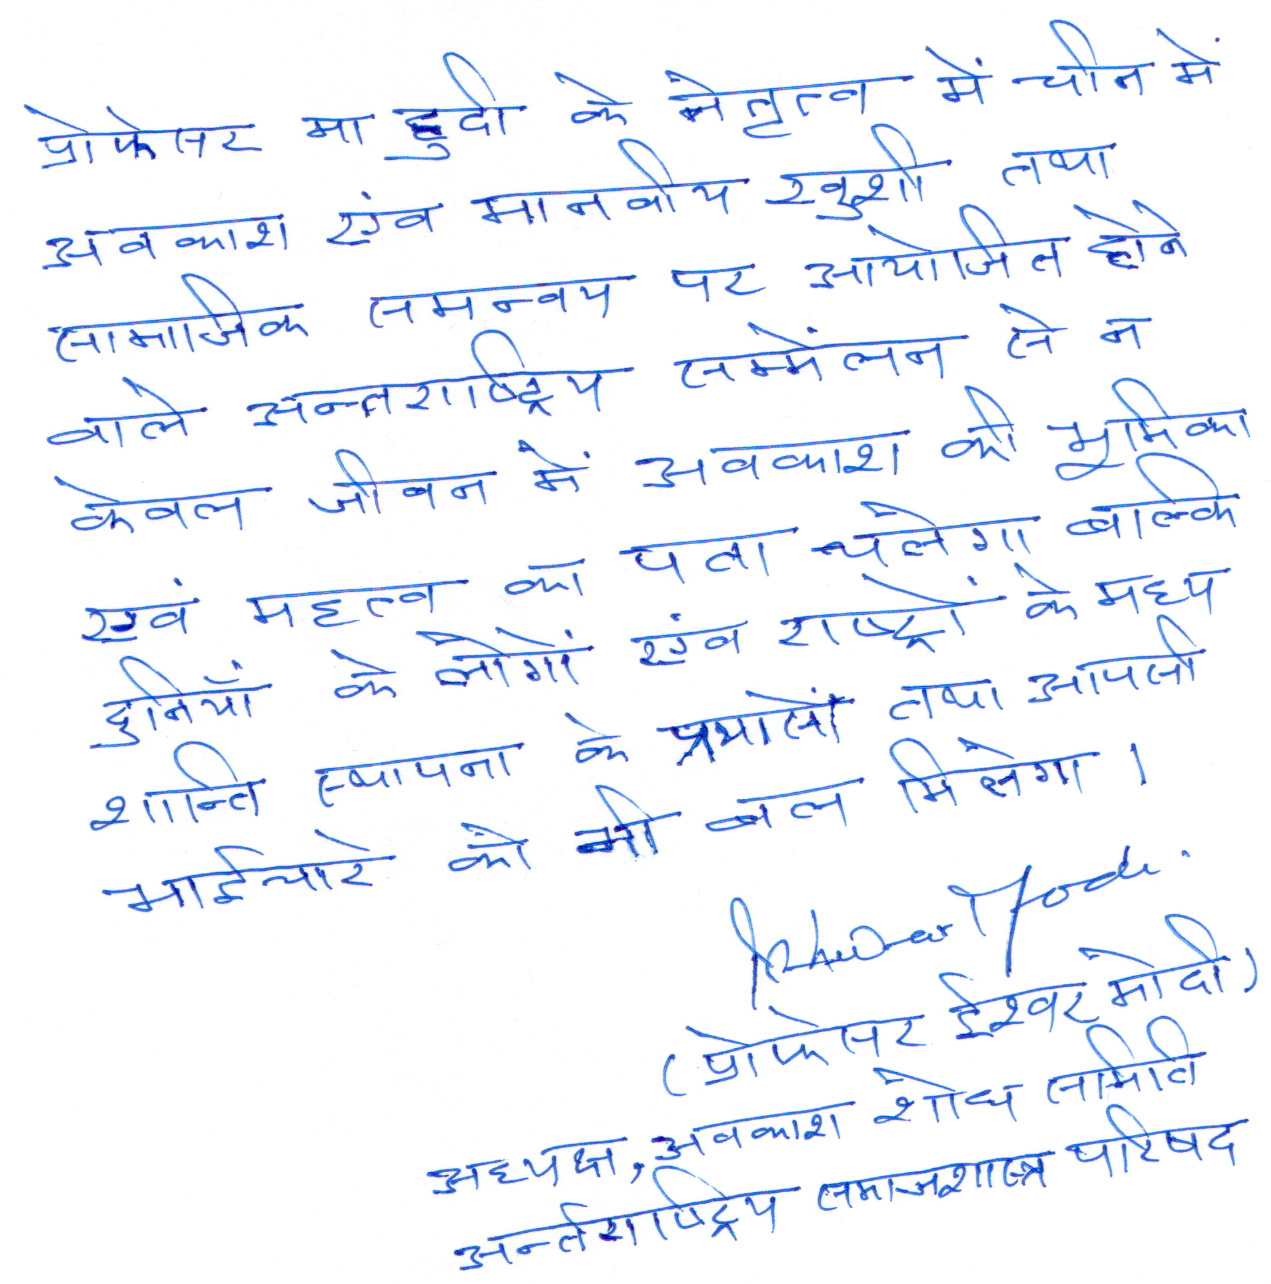 प्रोफेसर मा हुदी के नेतृत्व में चीन में
अवकाश एंव मानवीय खुशी तथा
सामाजिक समन्वय पर आयोजित होने
वाले अन्तराष्ट्रिय सम्मेंलन से न
केवल जीवन में अवकाश की भूमिका
एवं महत्व का पता चलेगा बल्कि
दुनियाँ के लोगों एंव राष्ट्रों के मध्य
शान्ति स्थापना के प्रयासों तथा आपसी
भाईचारे को भी बल मिलेगा ।
Ishwar Modi
(प्रोफेसर ईश्वर मोदी)
अध्यक्ष, अवकाश शोध समिति
अर्न्तराष्ट्रिय समाजशास्त्र परिषद